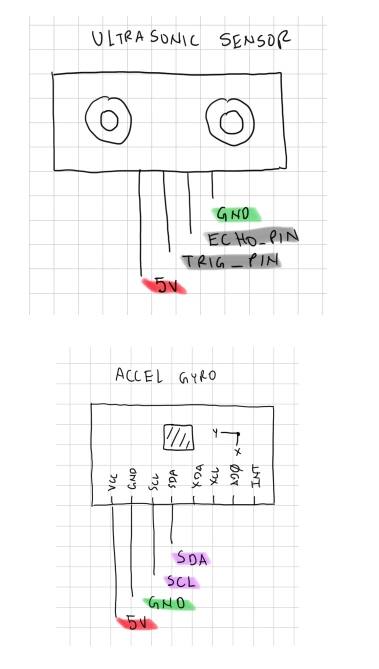 ULTRASONIC SENSOR
GND
ECHO_PIN
TRIG_PIN
5V
ACCEL GYRO
Y
X
VCC GND SCL SDA XDA XCL AD0 INT
SDA
SCL
GND
5V